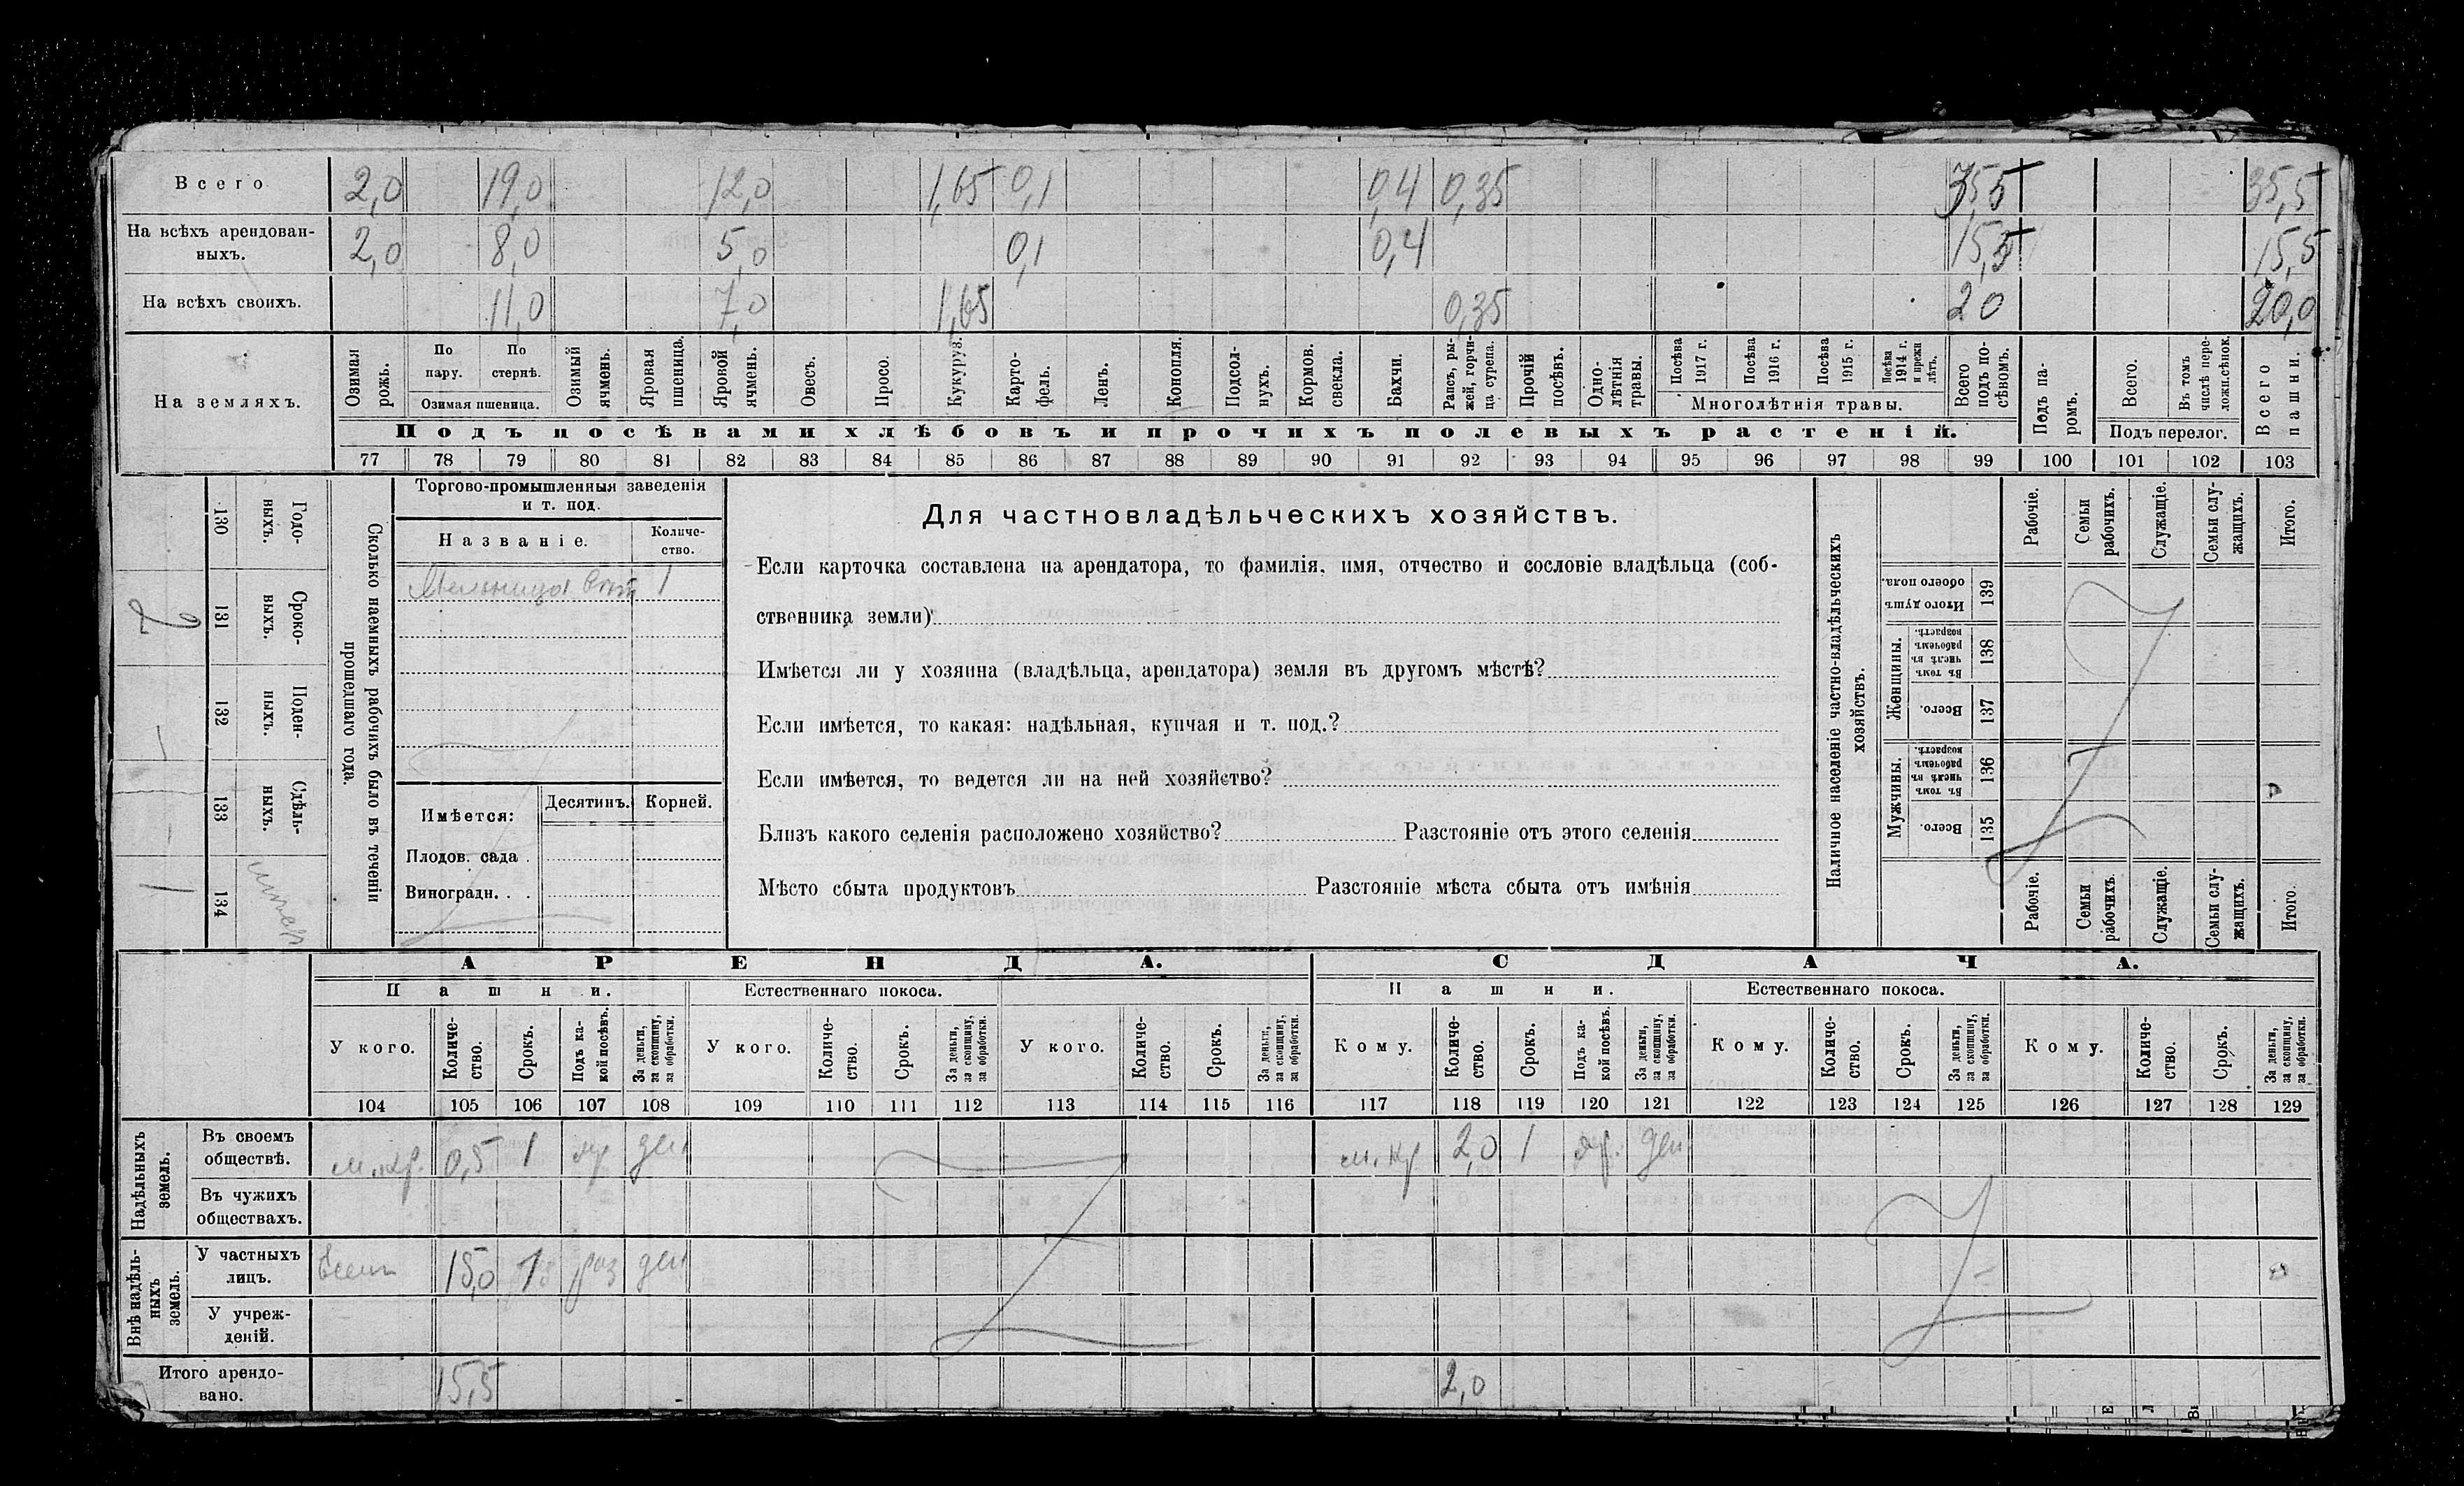 Всего 2,0 19,0 12,0 1,65 0,1 0,4 0,35 35,5 35,5
На всѣхъ арендован-
ныхъ. 2,0 8,0 5,0 0,1 0,4 15,5 15,5
На всѣхъ своихъ. 11,0 7,0 1,65 0,35 20 20,0
На земляхъ.
Озимая рожь.
По пару.
По стернѣ.
Озимая пшеница.
Озимый ячмень.
Яровая пшеница.
Яровой ячмень.
Овесъ.
Просо.
Кукуруз.
Карто-
фель.
Ленъ.
Конопля.
Подсол-
нухъ.
Кормов. свекла.
Бахчи.
Рапсъ, ры-
жей, горчи-
ца сурепа.
Прочій посѣвъ.
Одно-
лѣтнія травы.
Посѣва 1917 г.
Посѣва 1916 г.
Посѣва 1915 г.
Посѣва 1914 г. и прежн лѣтъ.
Многолѣтнія травы.
Всего подъ по-
сѣвомъ.
Подъ па-
ромъ.
Всего.
Въ томъ числѣ пере-
ложн.сѣнок.
Подъ перелог.
Всего пашни.
Подъ посѣвами хлѣбовъ и прочихъ полевыхъ растеній.
77 78 79 80 81 82 83 84 85 86 87 88 89 90 91 92 93 94 95 96 97 98 99 100 101 102 103
Сколько наемныхъ рабочихъ было въ теченіи
прошедшаго года.
Годо-
выхъ.
130
Сроко-
выхъ.
131
2
Поден-
ныхъ.
132
Сдѣль-
ныхъ.
133
134
Торгово-промышленныя заведенія
и т. под.
Названіе.
Количе-
ство.
Мельница 1
Имѣется: Десятинъ. Корней.
Плодов. сада .
Виноградн. . .
Для частновладѣльческихъ хозяйствъ.
Если карточка составлена на арендатора, то фамилія, имя, отчество и сословіе владѣльца (соб-
ственника земли)
Имѣется ли у хозяина (владѣльца, арендатора) земля въ другомъ мѣстѣ?
Если имѣется, то какая: надѣльная, купчая и т. под.?
Если имѣется, то ведется ли на ней хозяйство?
Близъ какого селенія расположено хозяйство? Разстояніе отъ этого селенія
Мѣсто сбыта продуктовъ Разстояніе мѣста сбыта отъ имѣнія
Наличное населеніе частно-владѣльческихъ
хозяйствъ.
Рабочіе.
Семьи рабочихъ.
Служащіе.
Семьи слу-
жащихъ.
Итого.
Итого душъ обоего пола.
139
Женщины.
Въ томъ числѣ въ рабочемъ возрастѣ.
138
Всего.
137
Мужчины.
Въ томъ числѣ въ рабочемъ возрастѣ.
136
Всего.
135
Рабочіе.
Семьи рабочихъ.
Служащіе.
Семьи слу-
жащихъ.
Итого.
АРЕНДА. СДАЧА.
Пашни. Естественнаго покоса. Пашни. Естественнаго покоса.
У кого.
Количе-
ство.
Срокъ.
Подъ ка-
кой посѣвъ.
За деньги, за скопщину, за обработки.
У кого.
Количе-
ство.
Срокъ.
За деньги, за скопщину, за обработки.
У кого.
Количе-
ство.
Срокъ.
За деньги, за скопщину, за обработки.
Кому.
Количе-
ство.
Срокъ.
Подъ ка-
кой посѣвъ.
За деньги, за скопщину, за обработки.
Кому.
Количе-
ство.
Срокъ.
За деньги, за скопщину, за обработки.
Кому.
Количе-
ство.
Срокъ.
За деньги, за скопщину, за обработки.
104 105 106 107 108 109 110 111 112 113 114 115 116 117 118 119 120 121 122 123 124 125 126 127 128 129
Надѣльныхъ земель.
Въ своемъ
обществѣ. м.кр. 0,5 1 яр ден м.кр 2,0 1 яр. ден
Въ чужихъ
обществахъ.
Внѣ надѣль-
ныхъ земель.
У частныхъ
лицъ. 15,0 роз ден
У учреж-
деній.
Итого арендо-
вано. 15,5 2,0